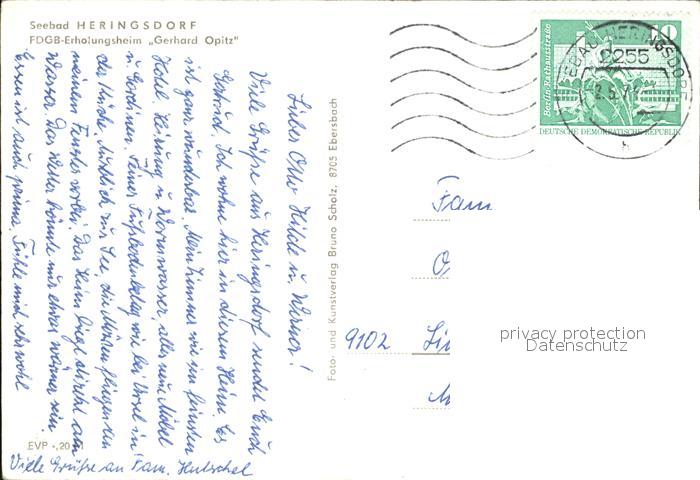 Seebad HERINGSDORF
FDGB-Erholungsheim „Gerhard Opitz"
Lieber Otto, Hilde u. Werner!
Viele Grüße aus Heringsdorf sendet Euch
Gertrud. Ich wohne hier in diesem Heim. Es
ist ganz wunderbar. Mein Zimmer wie im feinsten
Hotel. Heizung u. Warmwasser, alles neue Möbel
u. Gardinen. Feiner Fußbodenbelag wie bei Ursel in
der Küche. Südlich zur See, die Möwen fliegen an
meinem Fenster vorbei. Das Heim liegt direkt am
Wasser. Das Wetter könnte nur etwas wärmer sein
Essen ist auch prima. Fühle mich sehr wohl
Viele Grüße an Fam. Hutschel
EVP -,20
Foto- und Kunstverlag Bruno Scholz, 8705 Ebersbach
Berlin-Rathausstraße
10
DEUTSCHE DEMOKRATISCHE REPUBLIK
SEEBAD HERINGSDORF
2255
Fam
O
9102 Li
privacy protection
Datenschutz